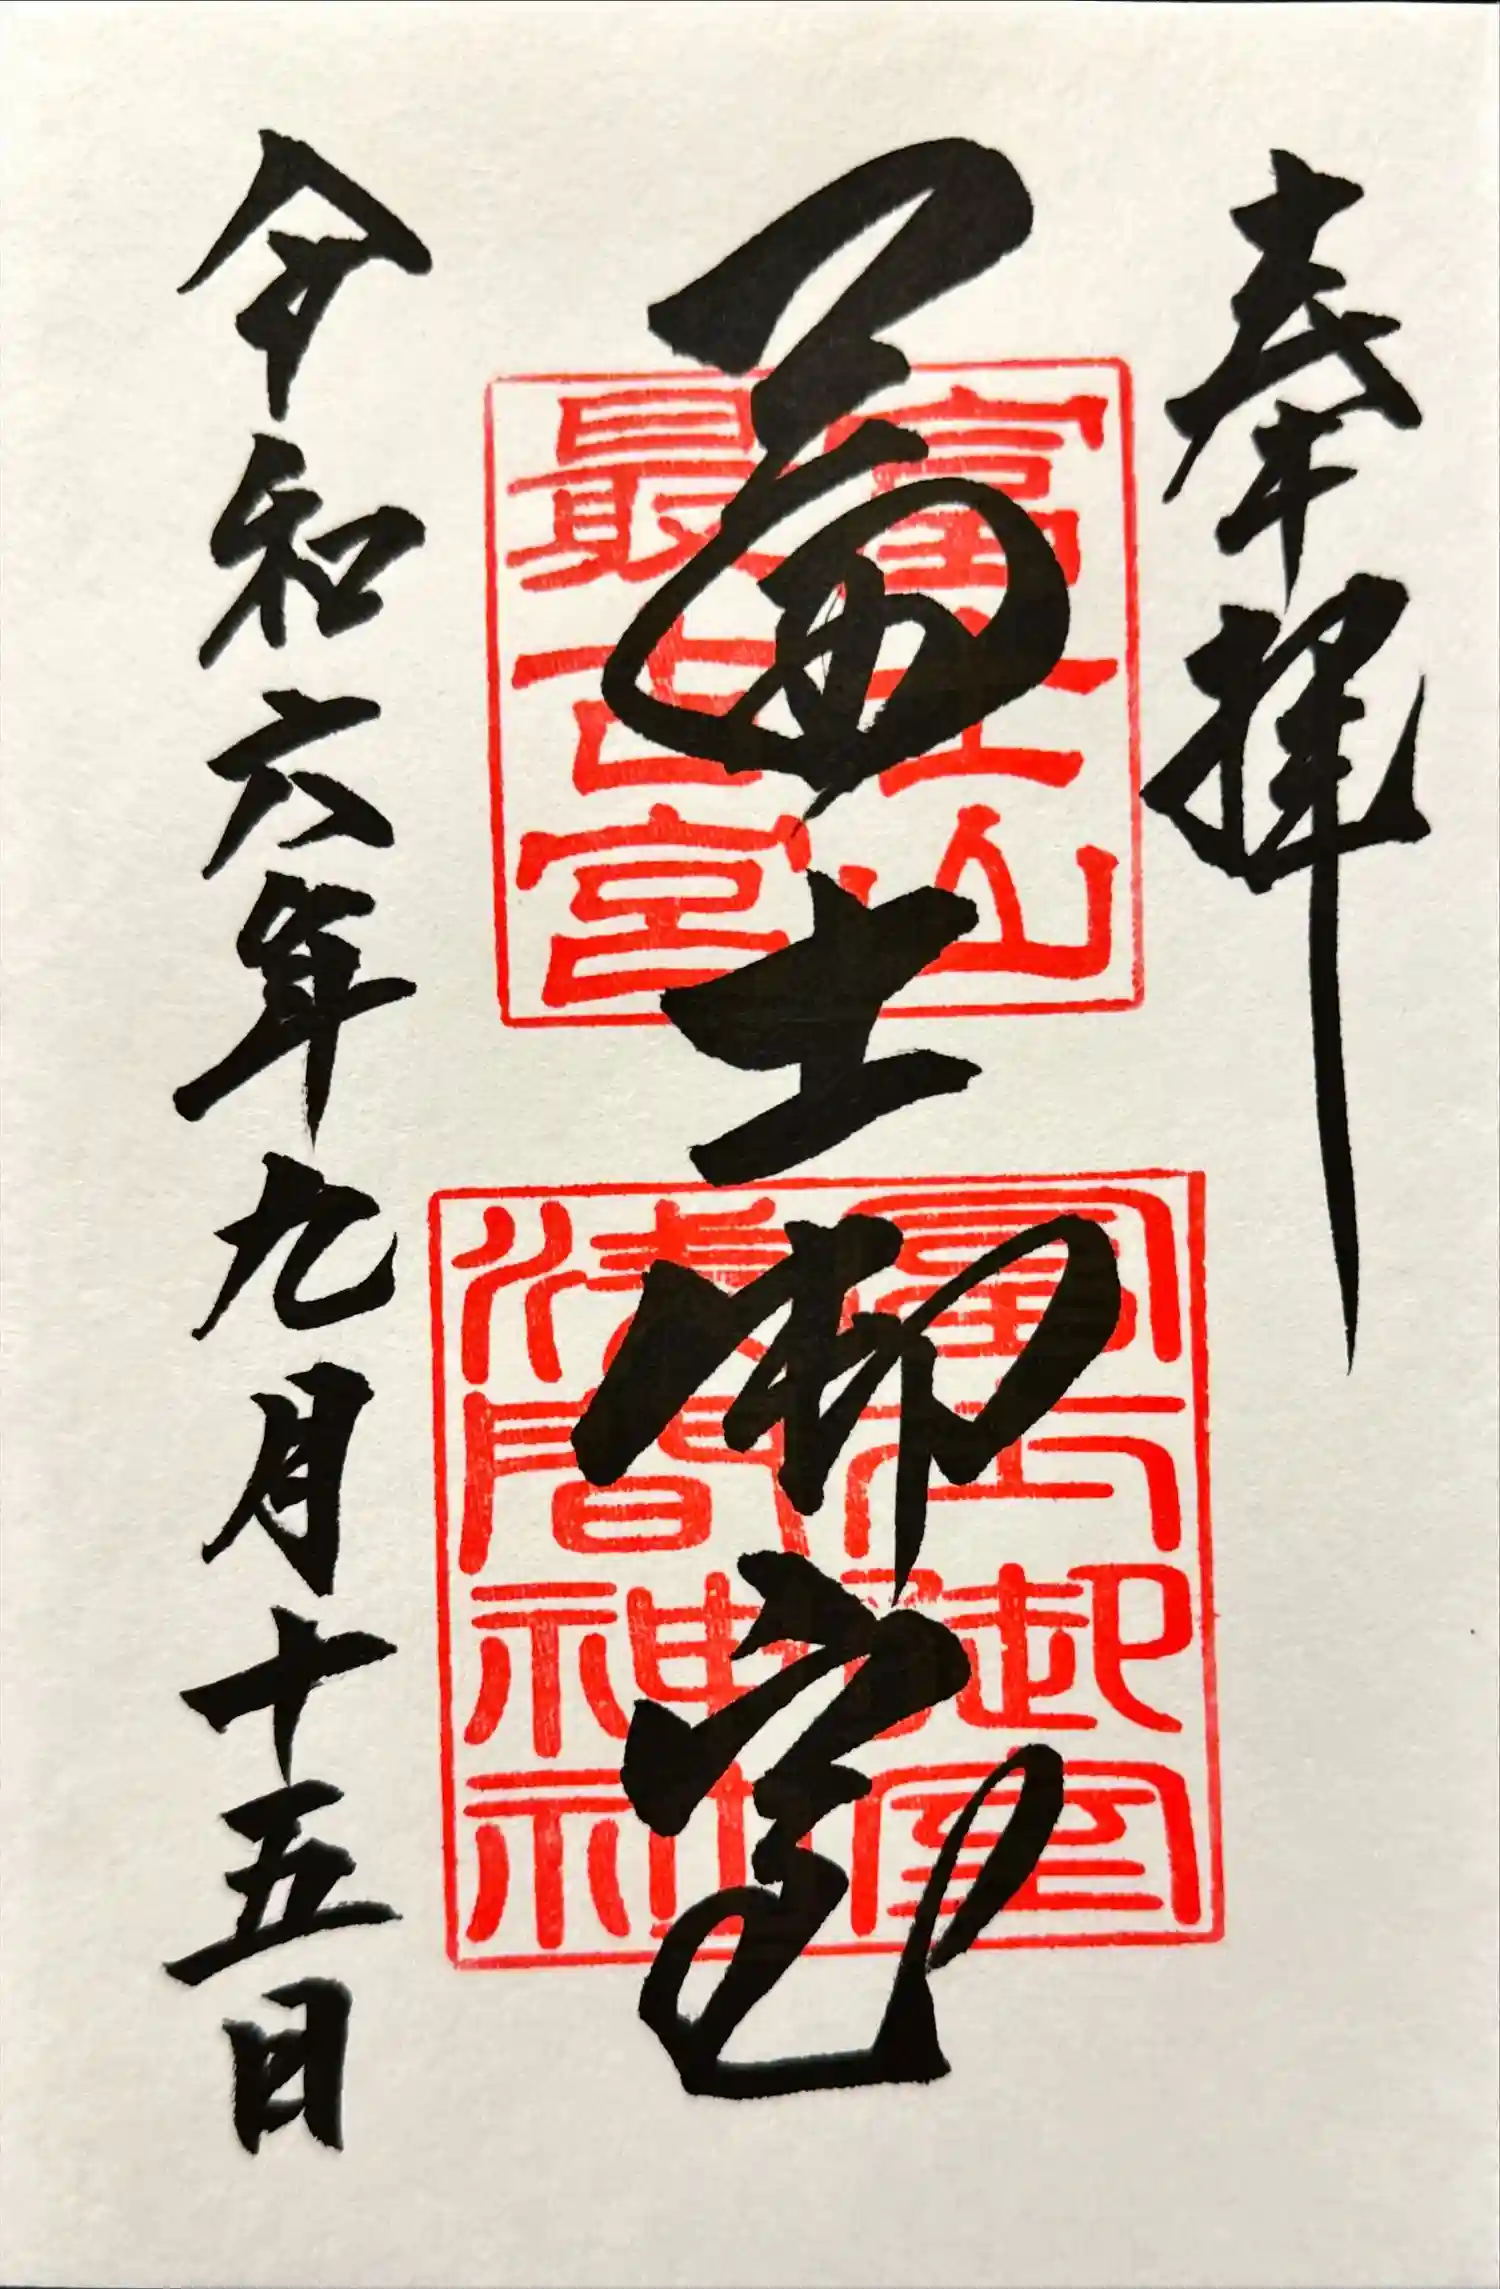 奉拝
富士御室
富士山
最古宮
富士御室
浅間神社
令和六年九月十五日